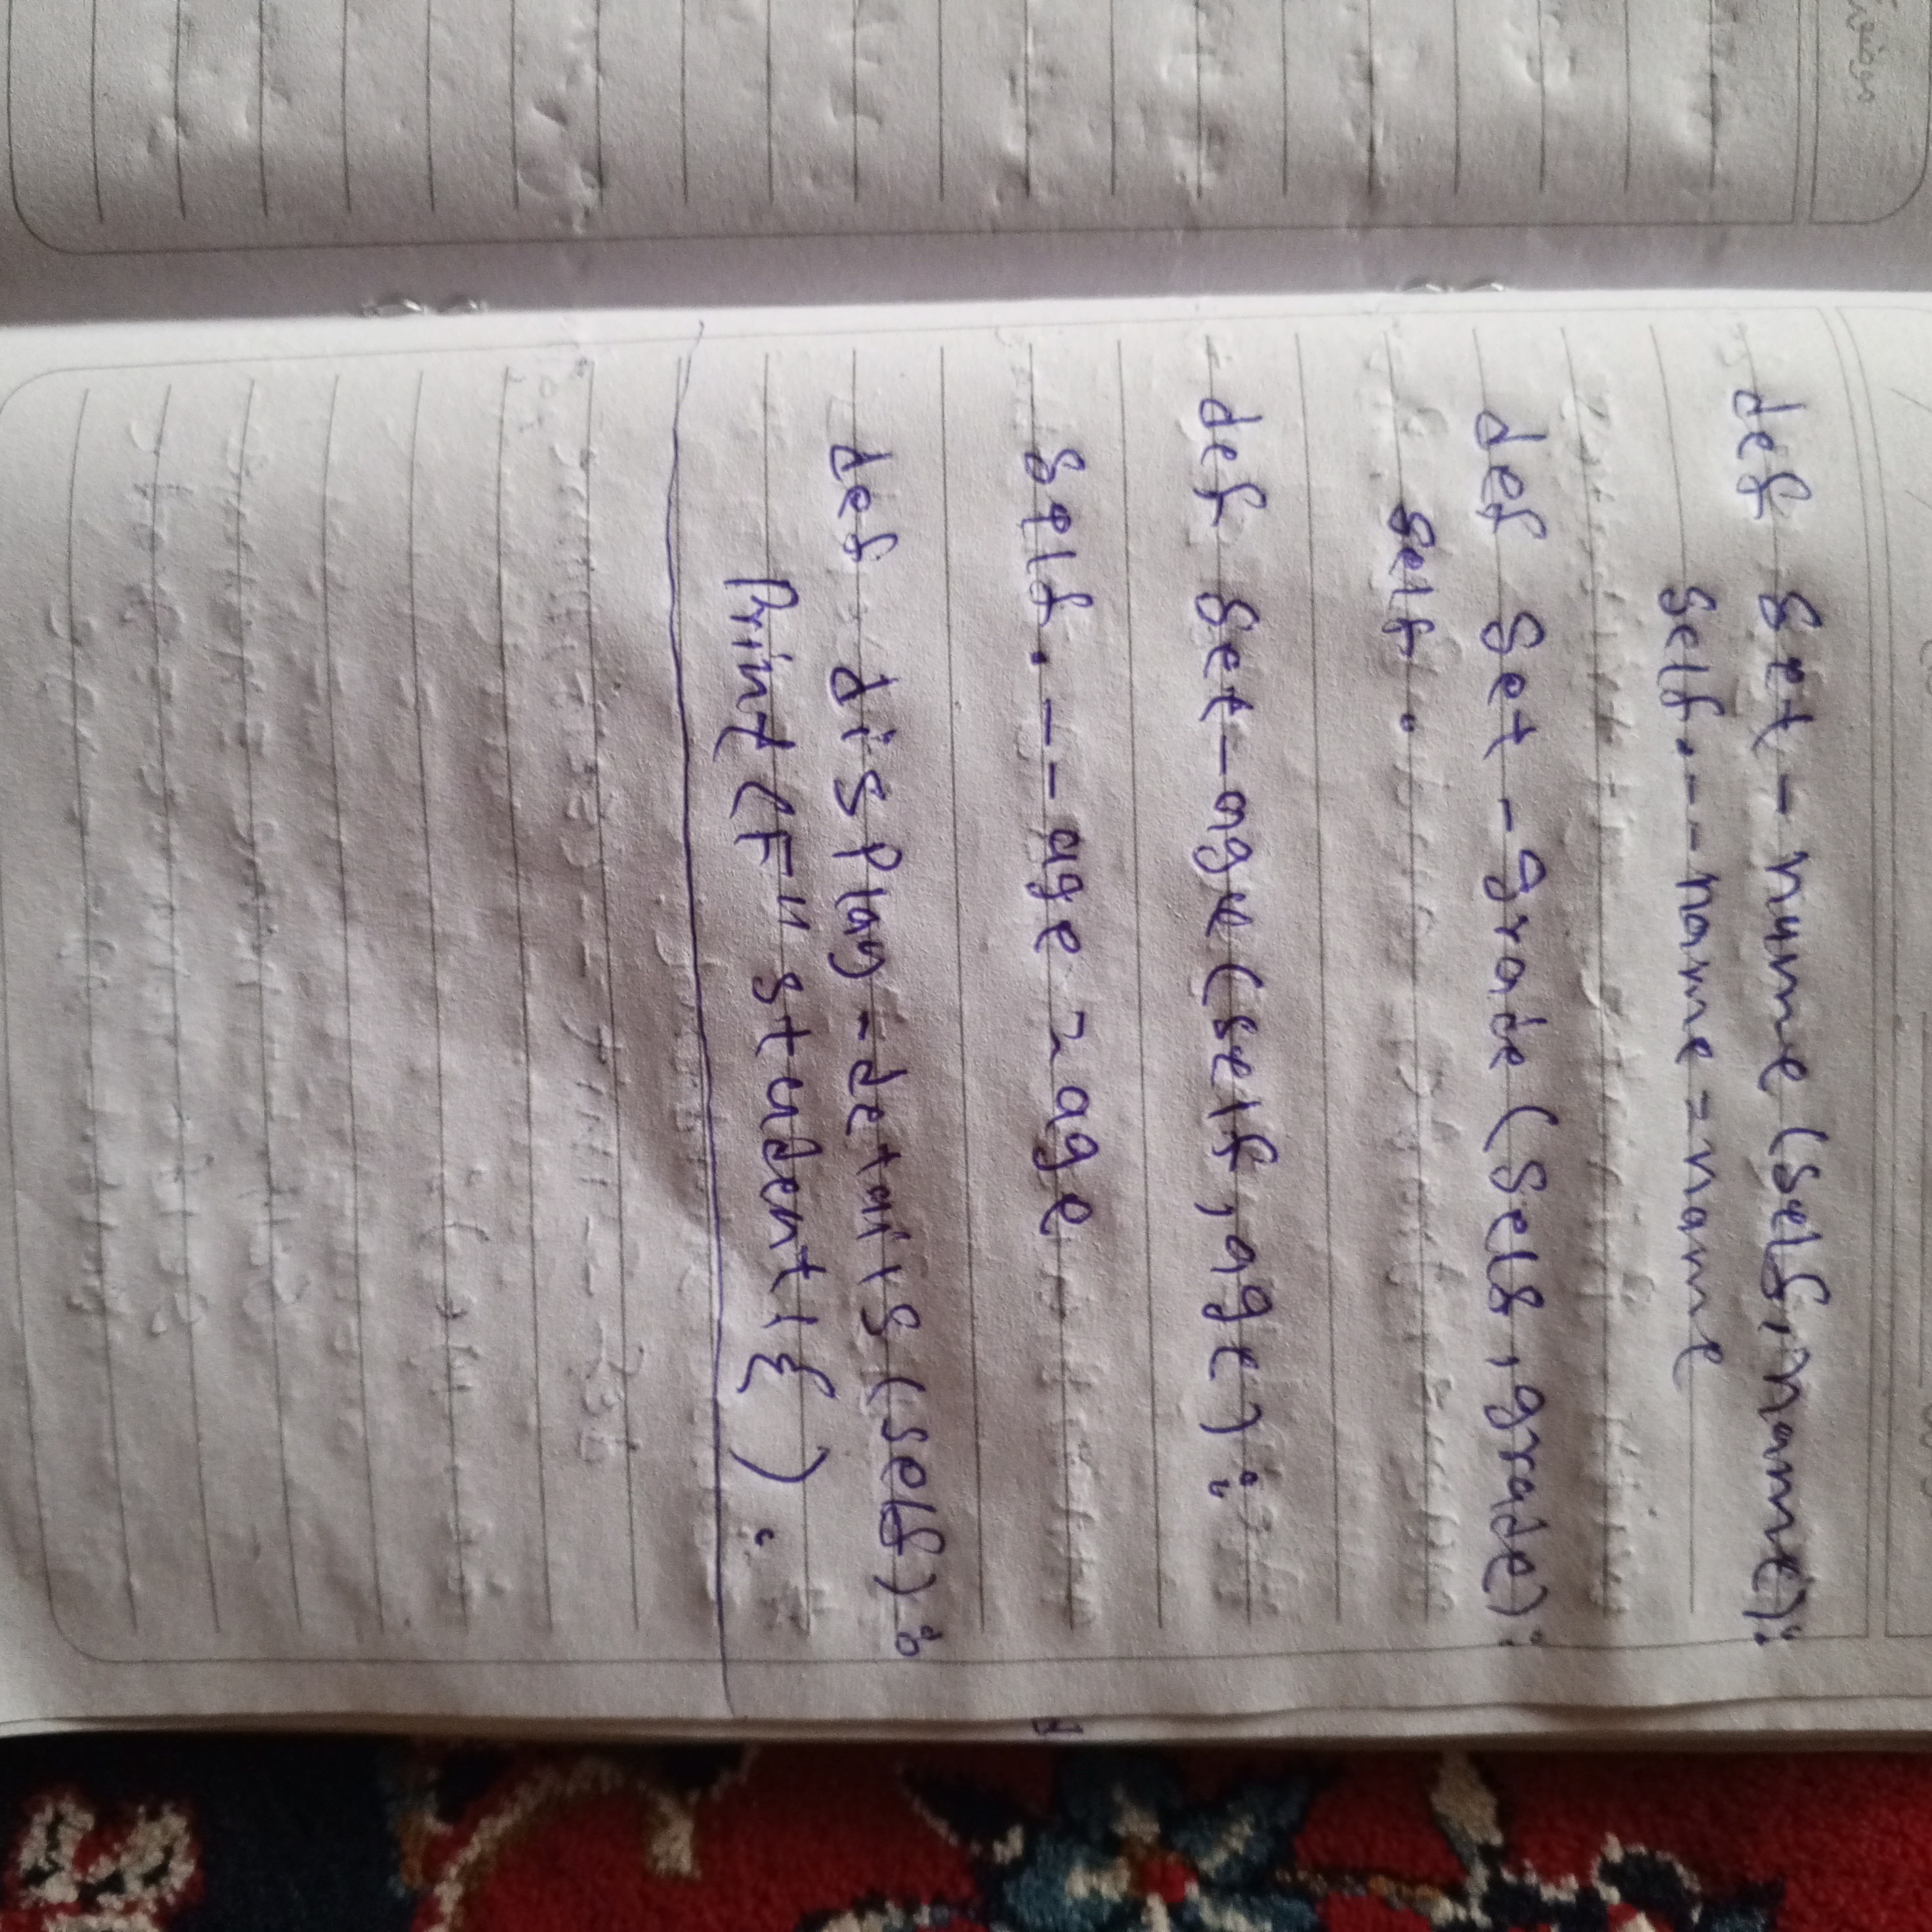 def set-nume (self, name):
self.--name = name
def set-grade (self, grade):
self.
def set-age (self, age):
self.--age = age
def display-details (self):
Print (F" student1{ ) :